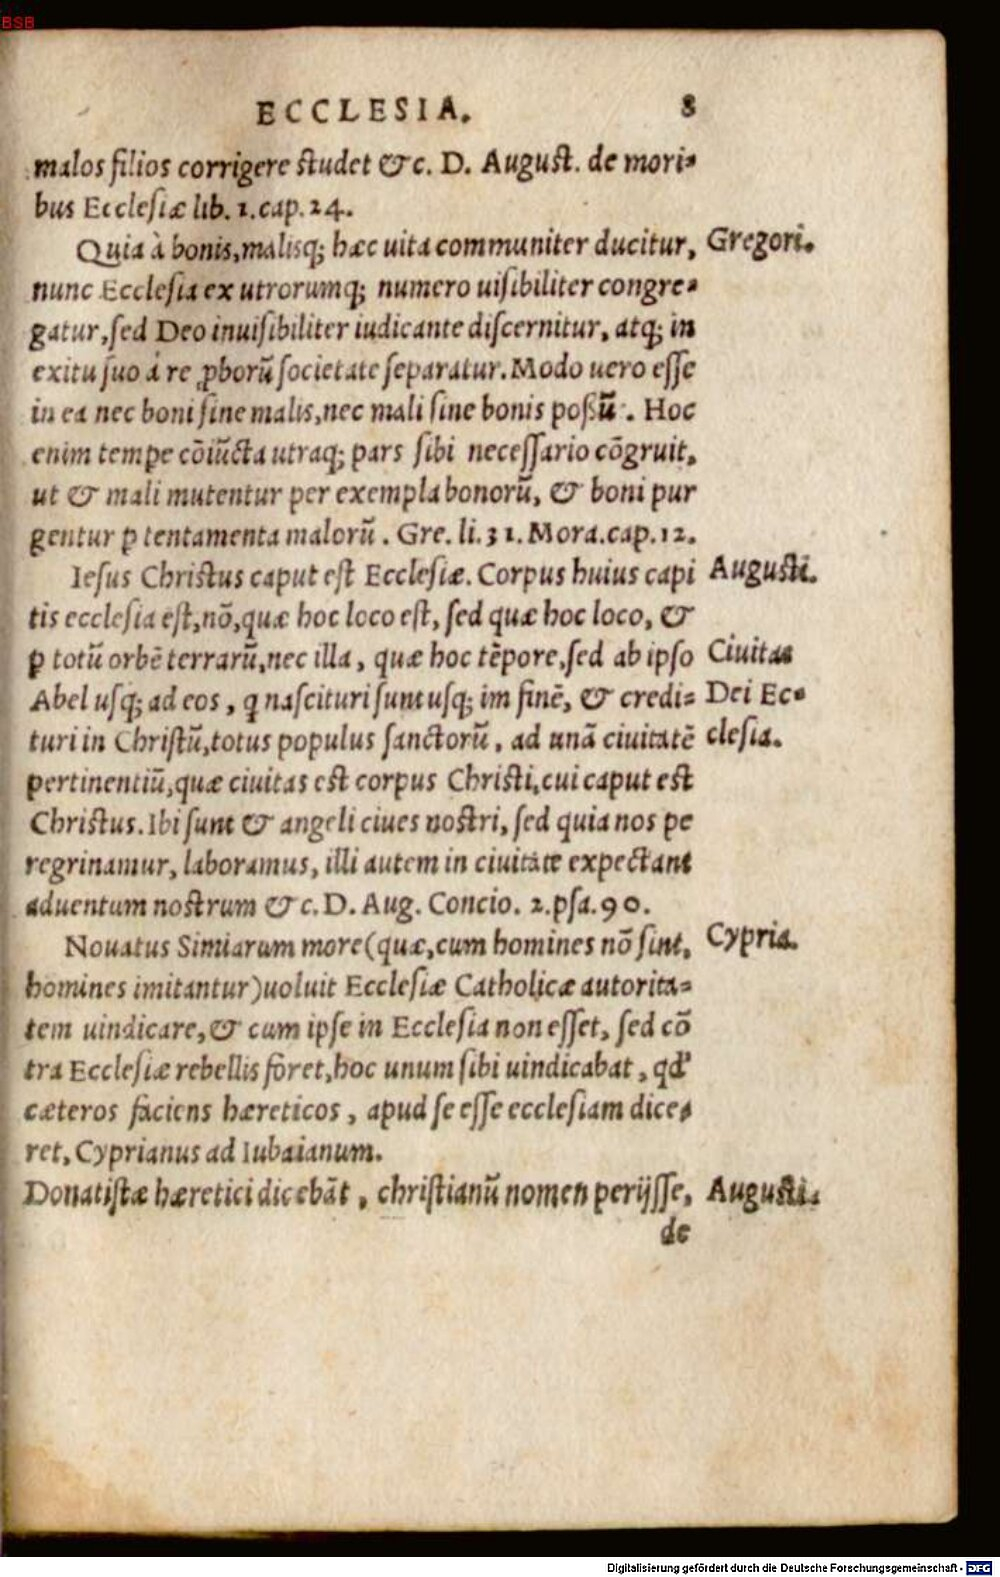 BSB
ECCLESIA. 8
malos filios corrigere studet &c. D. August. de mori-
bus Ecclesiæ lib. 1. cap. 24.
Quia à bonis, malisq; hæc uita communiter ducitur, Gregori.
nunc Ecclesia ex utrorumq; numero uisibiliter congre-
gatur, sed Deo inuisibiliter iudicante discernitur, atq; in
exitu suo à re ꝓborũ societate separatur. Modo uero esse
in ea nec boni sine malis, nec mali sine bonis poßũ. Hoc
enim tempe cõiũcta utraq; pars sibi necessario cõgruit,
ut & mali mutentur per exempla bonorũ, & boni pur
gentur ꝑ tentamenta malorũ. Gre. li. 31. Mora. cap. 12.
Iesus Christus caput est Ecclesiæ. Corpus huius capi Augusti.
tis ecclesia est, nõ, quæ hoc loco est, sed quæ hoc loco, &
ꝑ totũ orbẽ terrarũ, nec illa, quæ hoc tẽpore, sed ab ipso Ciuitas
Abel usq; ad eos, q nascituri sunt usq; im finẽ, & credi- Dei Ec-
turi in Christũ, totus populus sanctorũ, ad unã ciuitatẽ clesia.
pertinentiũ, quæ ciuitas est corpus Christi, cui caput est
Christus. Ibi sunt & angeli ciues nostri, sed quia nos pe
regrinamur, laboramus, illi autem in ciuitate expectant
aduentum nostrum &c. D. Aug. Concio. 2. psa. 90.
Nouatus Simiarum more (quæ, cum homines nõ sint, Cypria.
homines imitantur) uoluit Ecclesiæ Catholicæ autorita-
tem uindicare, & cum ipse in Ecclesia non esset, sed cõ
tra Ecclesiæ rebellis foret, hoc unum sibi uindicabat, qd'
cæteros faciens hæreticos, apud se esse ecclesiam dice-
ret, Cyprianus ad Iubaianum.
Donatistæ hæretici dicebãt, christianũ nomen perijsse, Augusti.
de
Digitalisierung gefördert durch die Deutsche Forschungsgemeinschaft - DFG